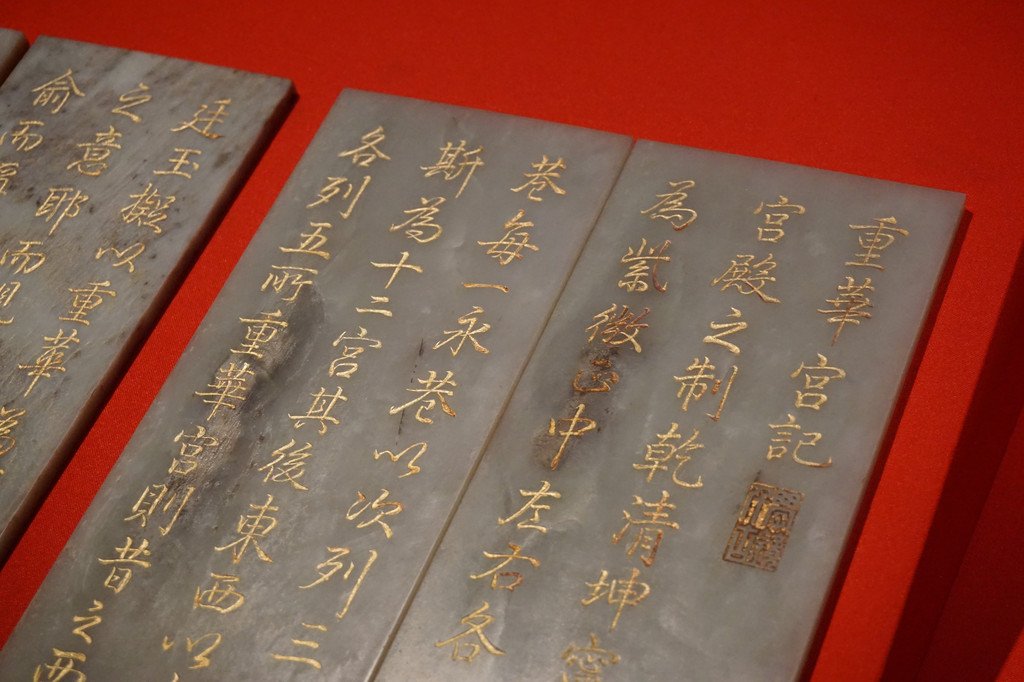 重華宮記
宮殿之制乾清坤寧
為紫微正中左右各
巷每一永巷以次列三
斯為十二宮其後東西以
各列五所重華宮則昔之西
廷玉擬以重華
之意耶而
俞而